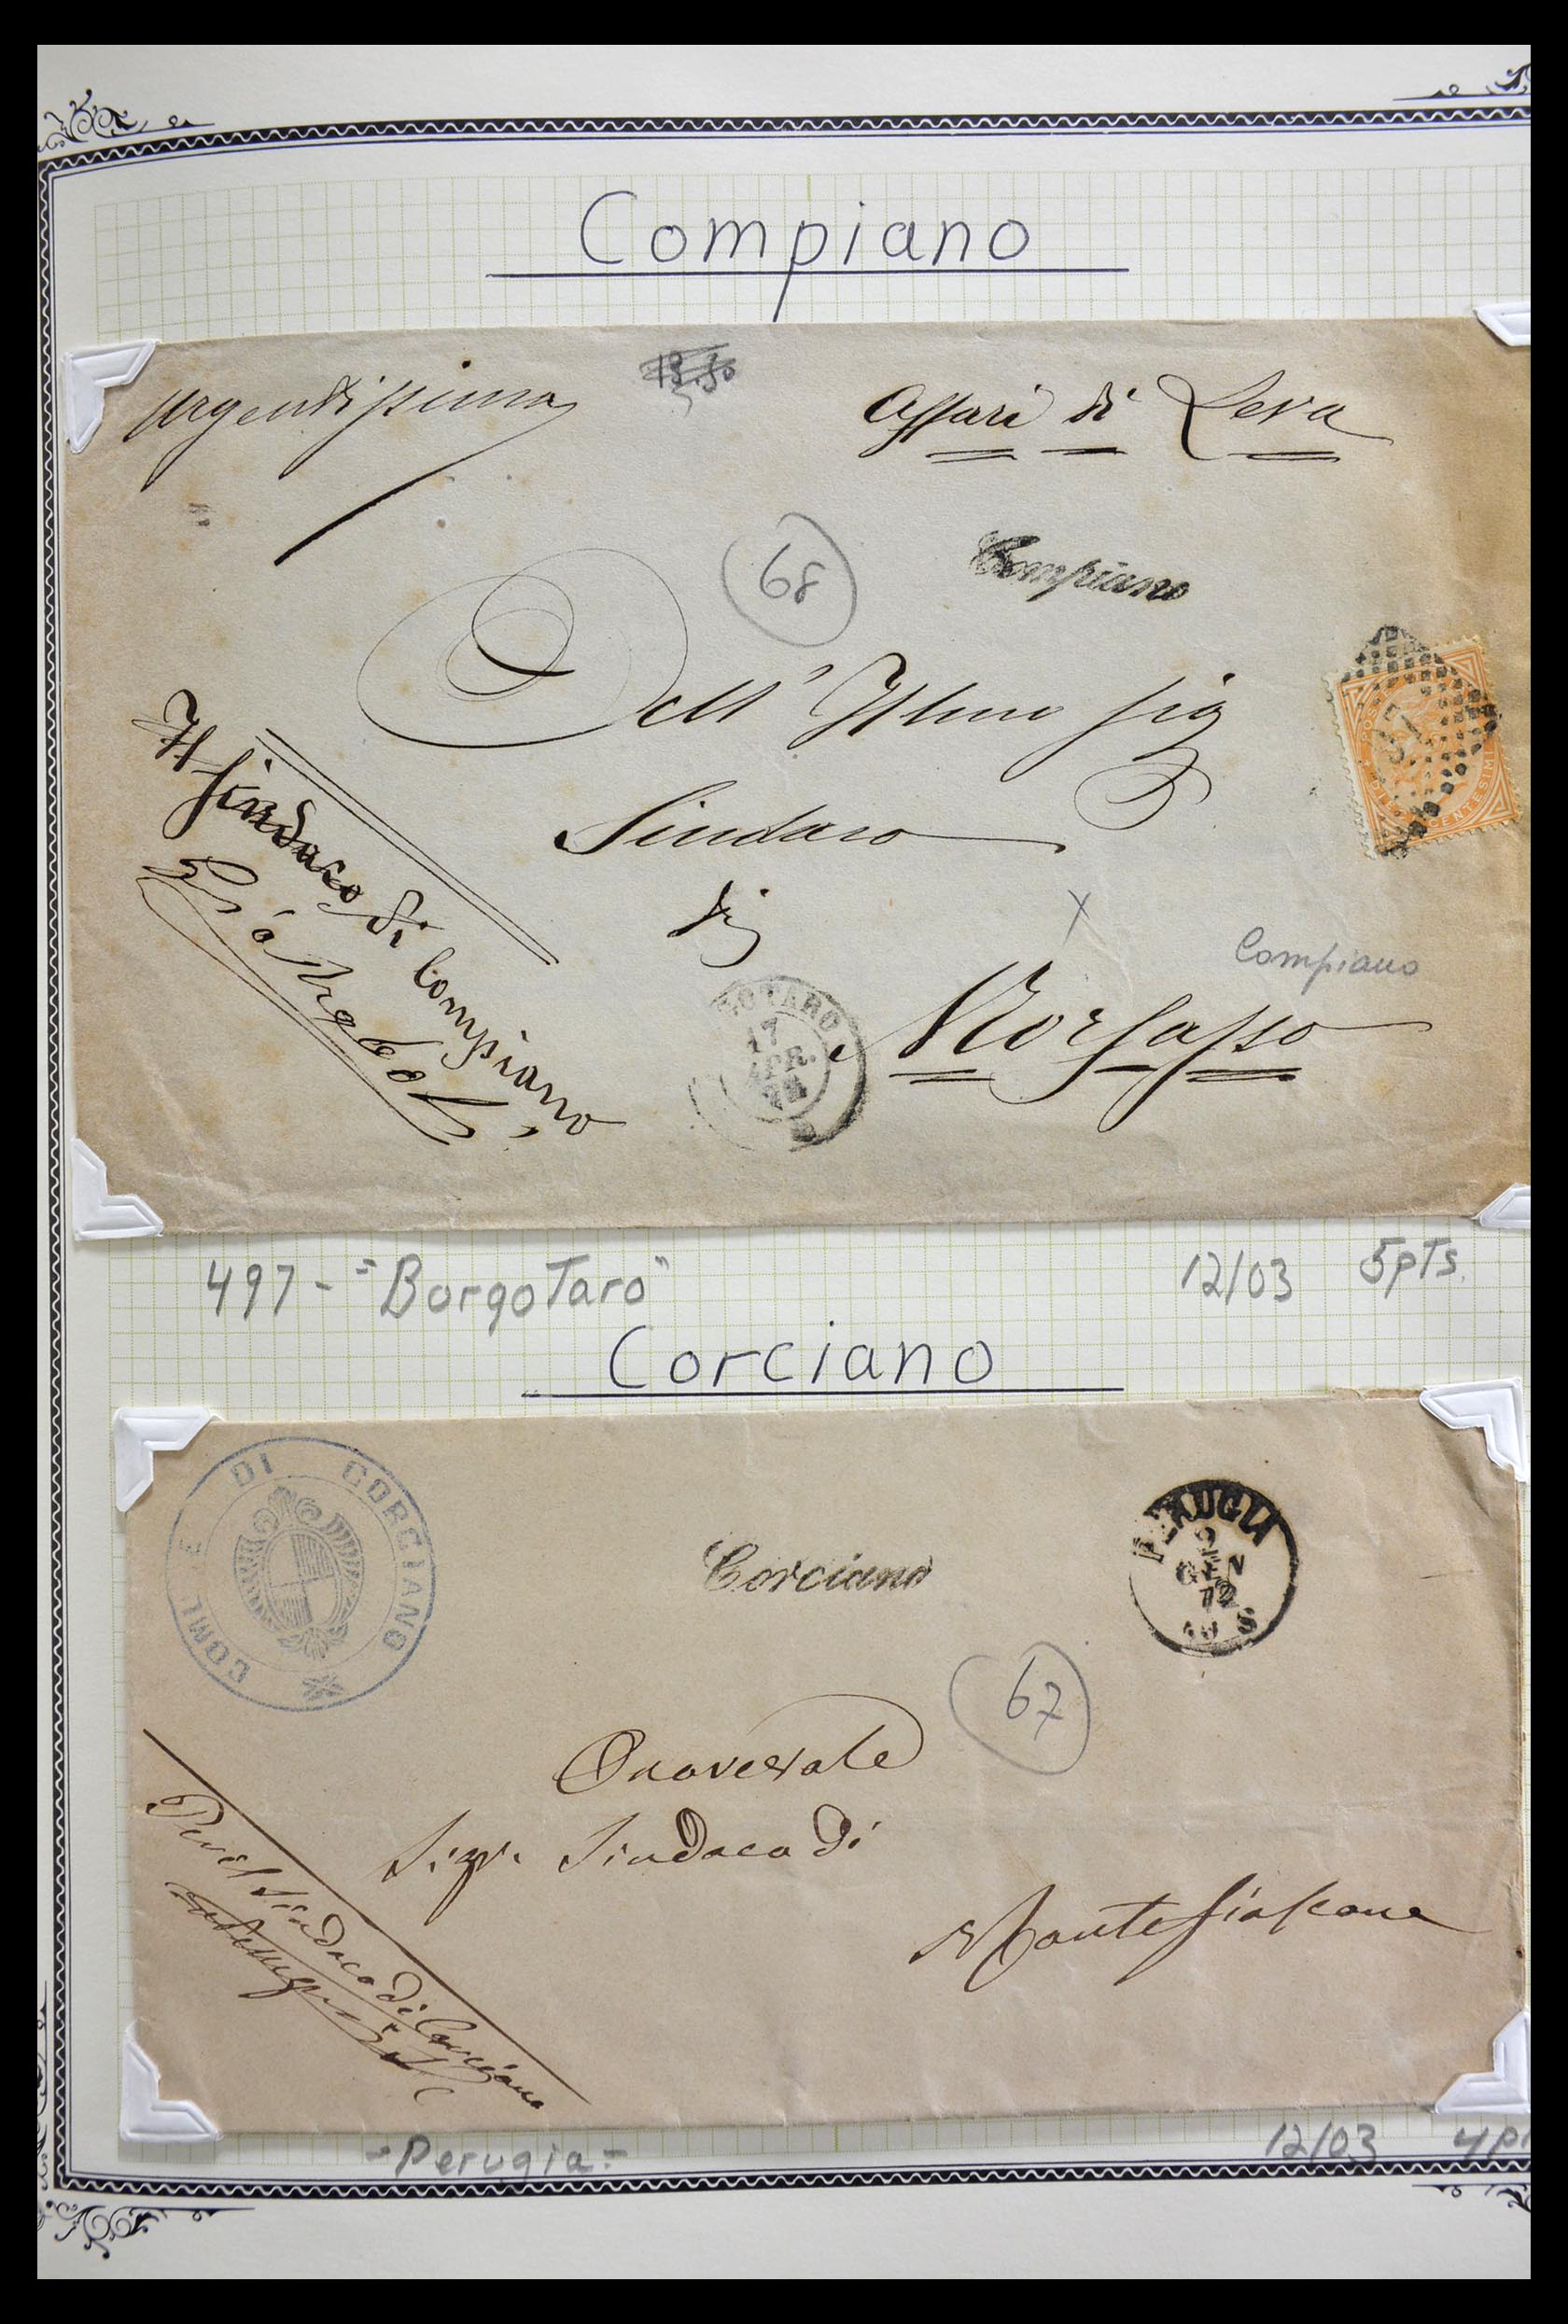 Compiano
Urgentissima
Affari di Leva
68
Compiano
Dell' Illmo Sig
Sindaco
di
Morfasso
Compiano
Il Sindaco di Compiano
OTARO
17
APR.
CENTESIMI
497 - "BorgoTaro"
12/03 5pTs.
Corciano
DI CORCIANO
Corciano
PERUGIA
2
GEN
72
10 S
67
Onorevole
Sigr. Sindaco di
Montefiascone
Per il Sindaco di Corciano
-Perugia-
12/03 4p